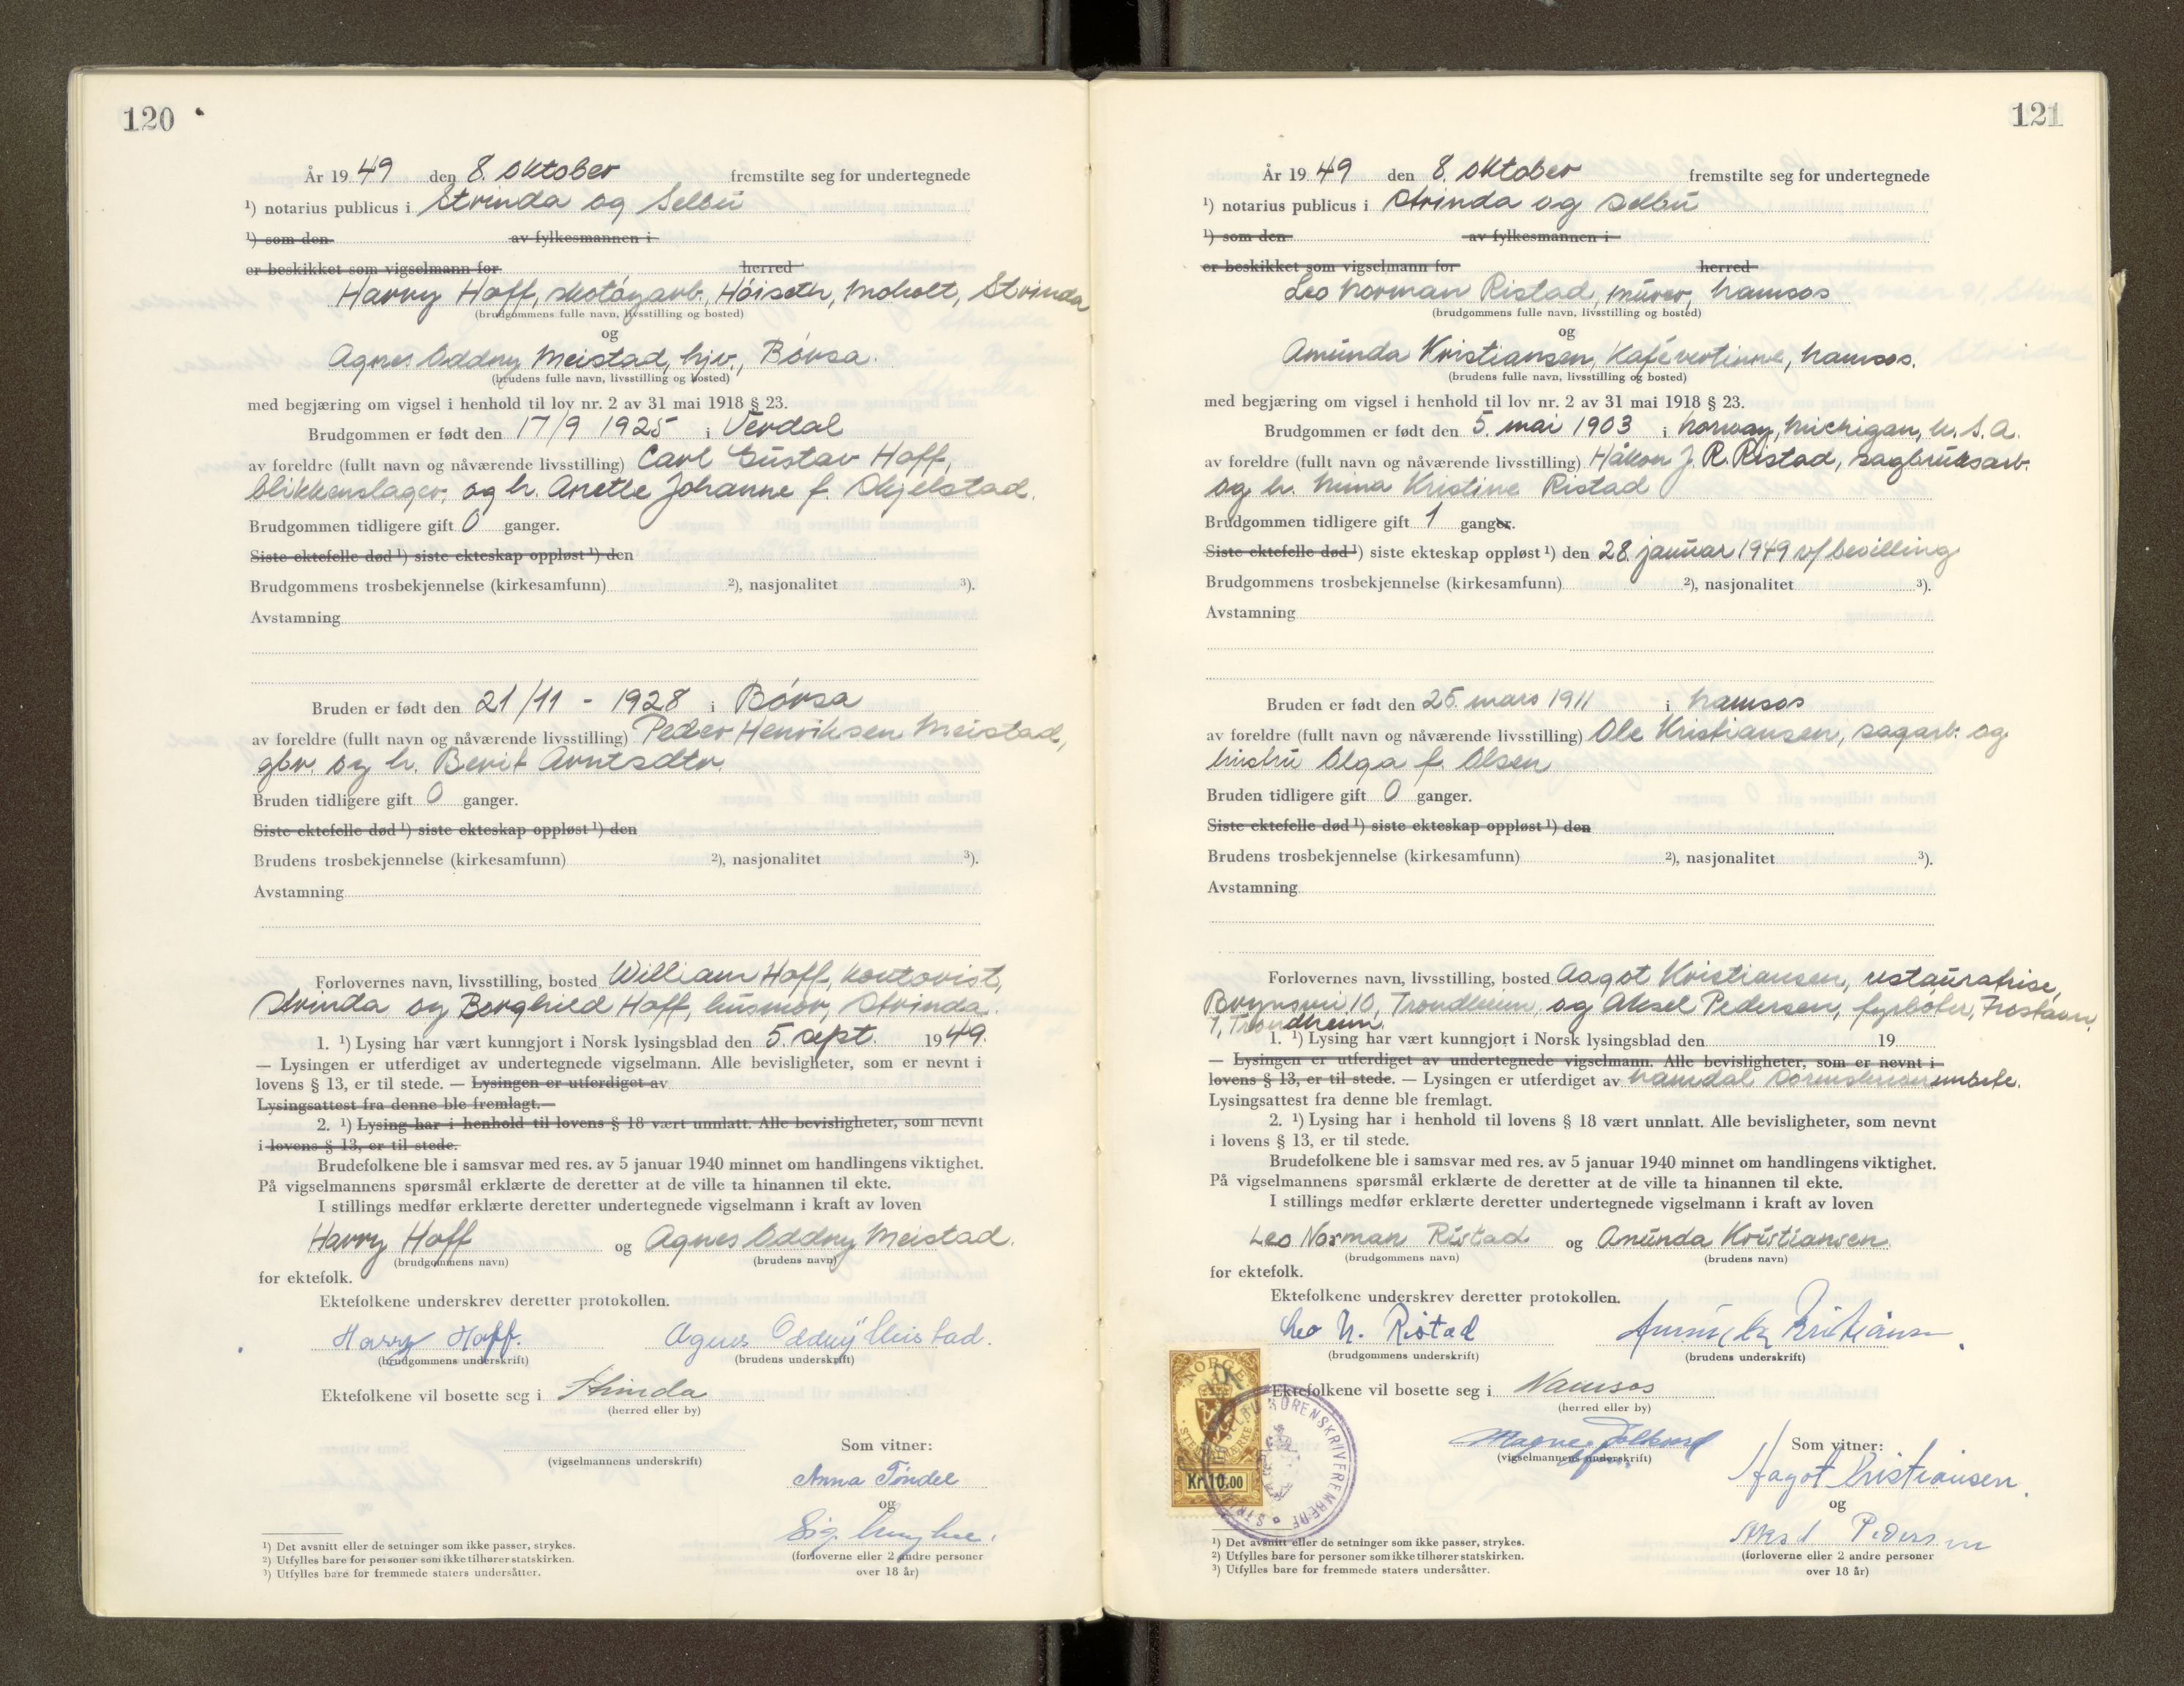 120
År 19 49 den 8. oktober fremstilte seg for undertegnede
¹) notarius publicus i Strinda og Selbu
¹) som den av fylkesmannen i
er beskikket som vigselmann for herred
Harry Hoff, skotøyarb., Høiseth, Moholt, Strinda
(brudgommens fulle navn, livsstilling og bosted)
og
Agnes Oddny Meistad, hjv., Børsa.
(brudens fulle navn, livsstilling og bosted)
med begjæring om vigsel i henhold til lov nr. 2 av 31 mai 1918 § 23.
Brudgommen er født den 17/9 1925 i Verdal
av foreldre (fullt navn og nåværende livsstilling) Carl Gustav Hoff,
blikkenslager, og h. Anette Johanne f. Okjelstad.
Brudgommen tidligere gift 0 ganger.
Siste ektefelle død ¹) siste ekteskap oppløst ¹) den
Brudgommens trosbekjennelse (kirkesamfunn) ²), nasjonalitet ³).
Avstamning
Bruden er født den 21/11 - 1928 i Børsa
av foreldre (fullt navn og nåværende livsstilling) Peder Henriksen Meistad,
gbr. og h. Berit Arntsdtr.
Bruden tidligere gift 0 ganger.
Siste ektefelle død ¹) siste ekteskap oppløst ¹) den
Brudens trosbekjennelse (kirkesamfunn) ²), nasjonalitet ³).
Avstamning
Forlovernes navn, livsstilling, bosted William Hoff, kontorist,
Strinda og Borghild Hoff, husmor, Strinda.
1. ¹) Lysing har vært kunngjort i Norsk lysingsblad den 5. sept. 1949.
— Lysingen er utferdiget av undertegnede vigselmann. Alle bevisligheter, som er nevnt i
lovens § 13, er til stede. — Lysingen er utferdiget av
Lysingsattest fra denne ble fremlagt.—
2. ¹) Lysing har i henhold til lovens § 18 vært unnlatt. Alle bevisligheter, som nevnt
i lovens § 13, er til stede.
Brudefolkene ble i samsvar med res. av 5 januar 1940 minnet om handlingens viktighet.
På vigselmannens spørsmål erklærte de deretter at de ville ta hinannen til ekte.
I stillings medfør erklærte deretter undertegnede vigselmann i kraft av loven
Harry Hoff og Agnes Oddny Meistad.
(brudgommens navn) (brudens navn)
for ektefolk.
Ektefolkene underskrev deretter protokollen.
Harry Hoff. Agnes Oddny Meistad.
(brudgommens underskrift) (brudens underskrift)
Ektefolkene vil bosette seg i Strinda
(herred eller by)
(vigselmannens underskrift)
Som vitner:
Anna Tøndel
og
Sig.
(forloverne eller 2 andre personer
over 18 år)
¹) Det avsnitt eller de setninger som ikke passer, strykes.
²) Utfylles bare for personer som ikke tilhører statskirken.
³) Utfylles bare for fremmede staters undersåtter.
121
År 19 49 den 8. oktober fremstilte seg for undertegnede
¹) notarius publicus i Strinda og Selbu
¹) som den av fylkesmannen i
er beskikket som vigselmann for herred
Leo Norman Ristad, murer, Namsos
(brudgommens fulle navn, livsstilling og bosted)
og
Amunda Kristiansen, kafévertinne, Namsos.
(brudens fulle navn, livsstilling og bosted)
med begjæring om vigsel i henhold til lov nr. 2 av 31 mai 1918 § 23.
Brudgommen er født den 5. mai 1903 i Norway, Michigan, U. S. A.
av foreldre (fullt navn og nåværende livsstilling) Håkon J. R. Ristad, sagbruksarb.
og h. Nina Kristine Ristad
Brudgommen tidligere gift 1 ganger.
Siste ektefelle død ¹) siste ekteskap oppløst ¹) den 28. januar 1949 v/ bevilling
Brudgommens trosbekjennelse (kirkesamfunn) ²), nasjonalitet ³).
Avstamning
Bruden er født den 25. mars 1911 i Namsos
av foreldre (fullt navn og nåværende livsstilling) Ole Kristiansen, sagarb. og
hustru Olga f. Olsen
Bruden tidligere gift 0 ganger.
Siste ektefelle død ¹) siste ekteskap oppløst ¹) den
Brudens trosbekjennelse (kirkesamfunn) ²), nasjonalitet ³).
Avstamning
Forlovernes navn, livsstilling, bosted Aagot Kristiansen, restauratrise,
10, Trondheim, og Aksel Pedersen, fyrbøter,
7, Trondheim.
1. ¹) Lysing har vært kunngjort i Norsk lysingsblad den 19
— Lysingen er utferdiget av undertegnede vigselmann. Alle bevisligheter, som er nevnt i
lovens § 13, er til stede. — Lysingen er utferdiget av Namdal sorenskriverembete.
Lysingsattest fra denne ble fremlagt.
2. ¹) Lysing har i henhold til lovens § 18 vært unnlatt. Alle bevisligheter, som nevnt
i lovens § 13, er til stede.
Brudefolkene ble i samsvar med res. av 5 januar 1940 minnet om handlingens viktighet.
På vigselmannens spørsmål erklærte de deretter at de ville ta hinannen til ekte.
I stillings medfør erklærte deretter undertegnede vigselmann i kraft av loven
Leo Norman Ristad og Amunda Kristiansen
(brudgommens navn) (brudens navn)
for ektefolk.
Ektefolkene underskrev deretter protokollen.
Leo N. Ristad Amunda Kristiansen.
(brudgommens underskrift) (brudens underskrift)
Ektefolkene vil bosette seg i Namsos
(herred eller by)
Magne
(vigselmannens underskrift)
Som vitner:
Aagot Kristiansen.
og
Aksel Pedersen
(forloverne eller 2 andre personer
over 18 år)
NORGE
Kr. 10.00
SORENSKRIVEREMBEDE
¹) Det avsnitt eller de setninger som ikke passer, strykes.
²) Utfylles bare for personer som ikke tilhører statskirken.
³) Utfylles bare for fremmede staters undersåtter.